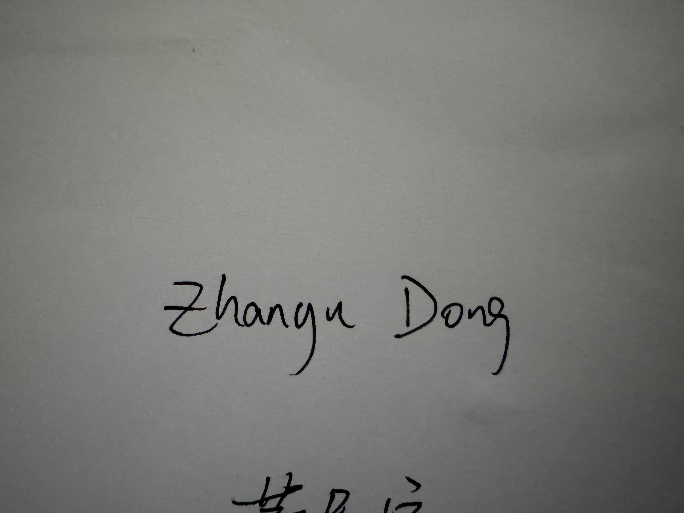 Zhangu Dong